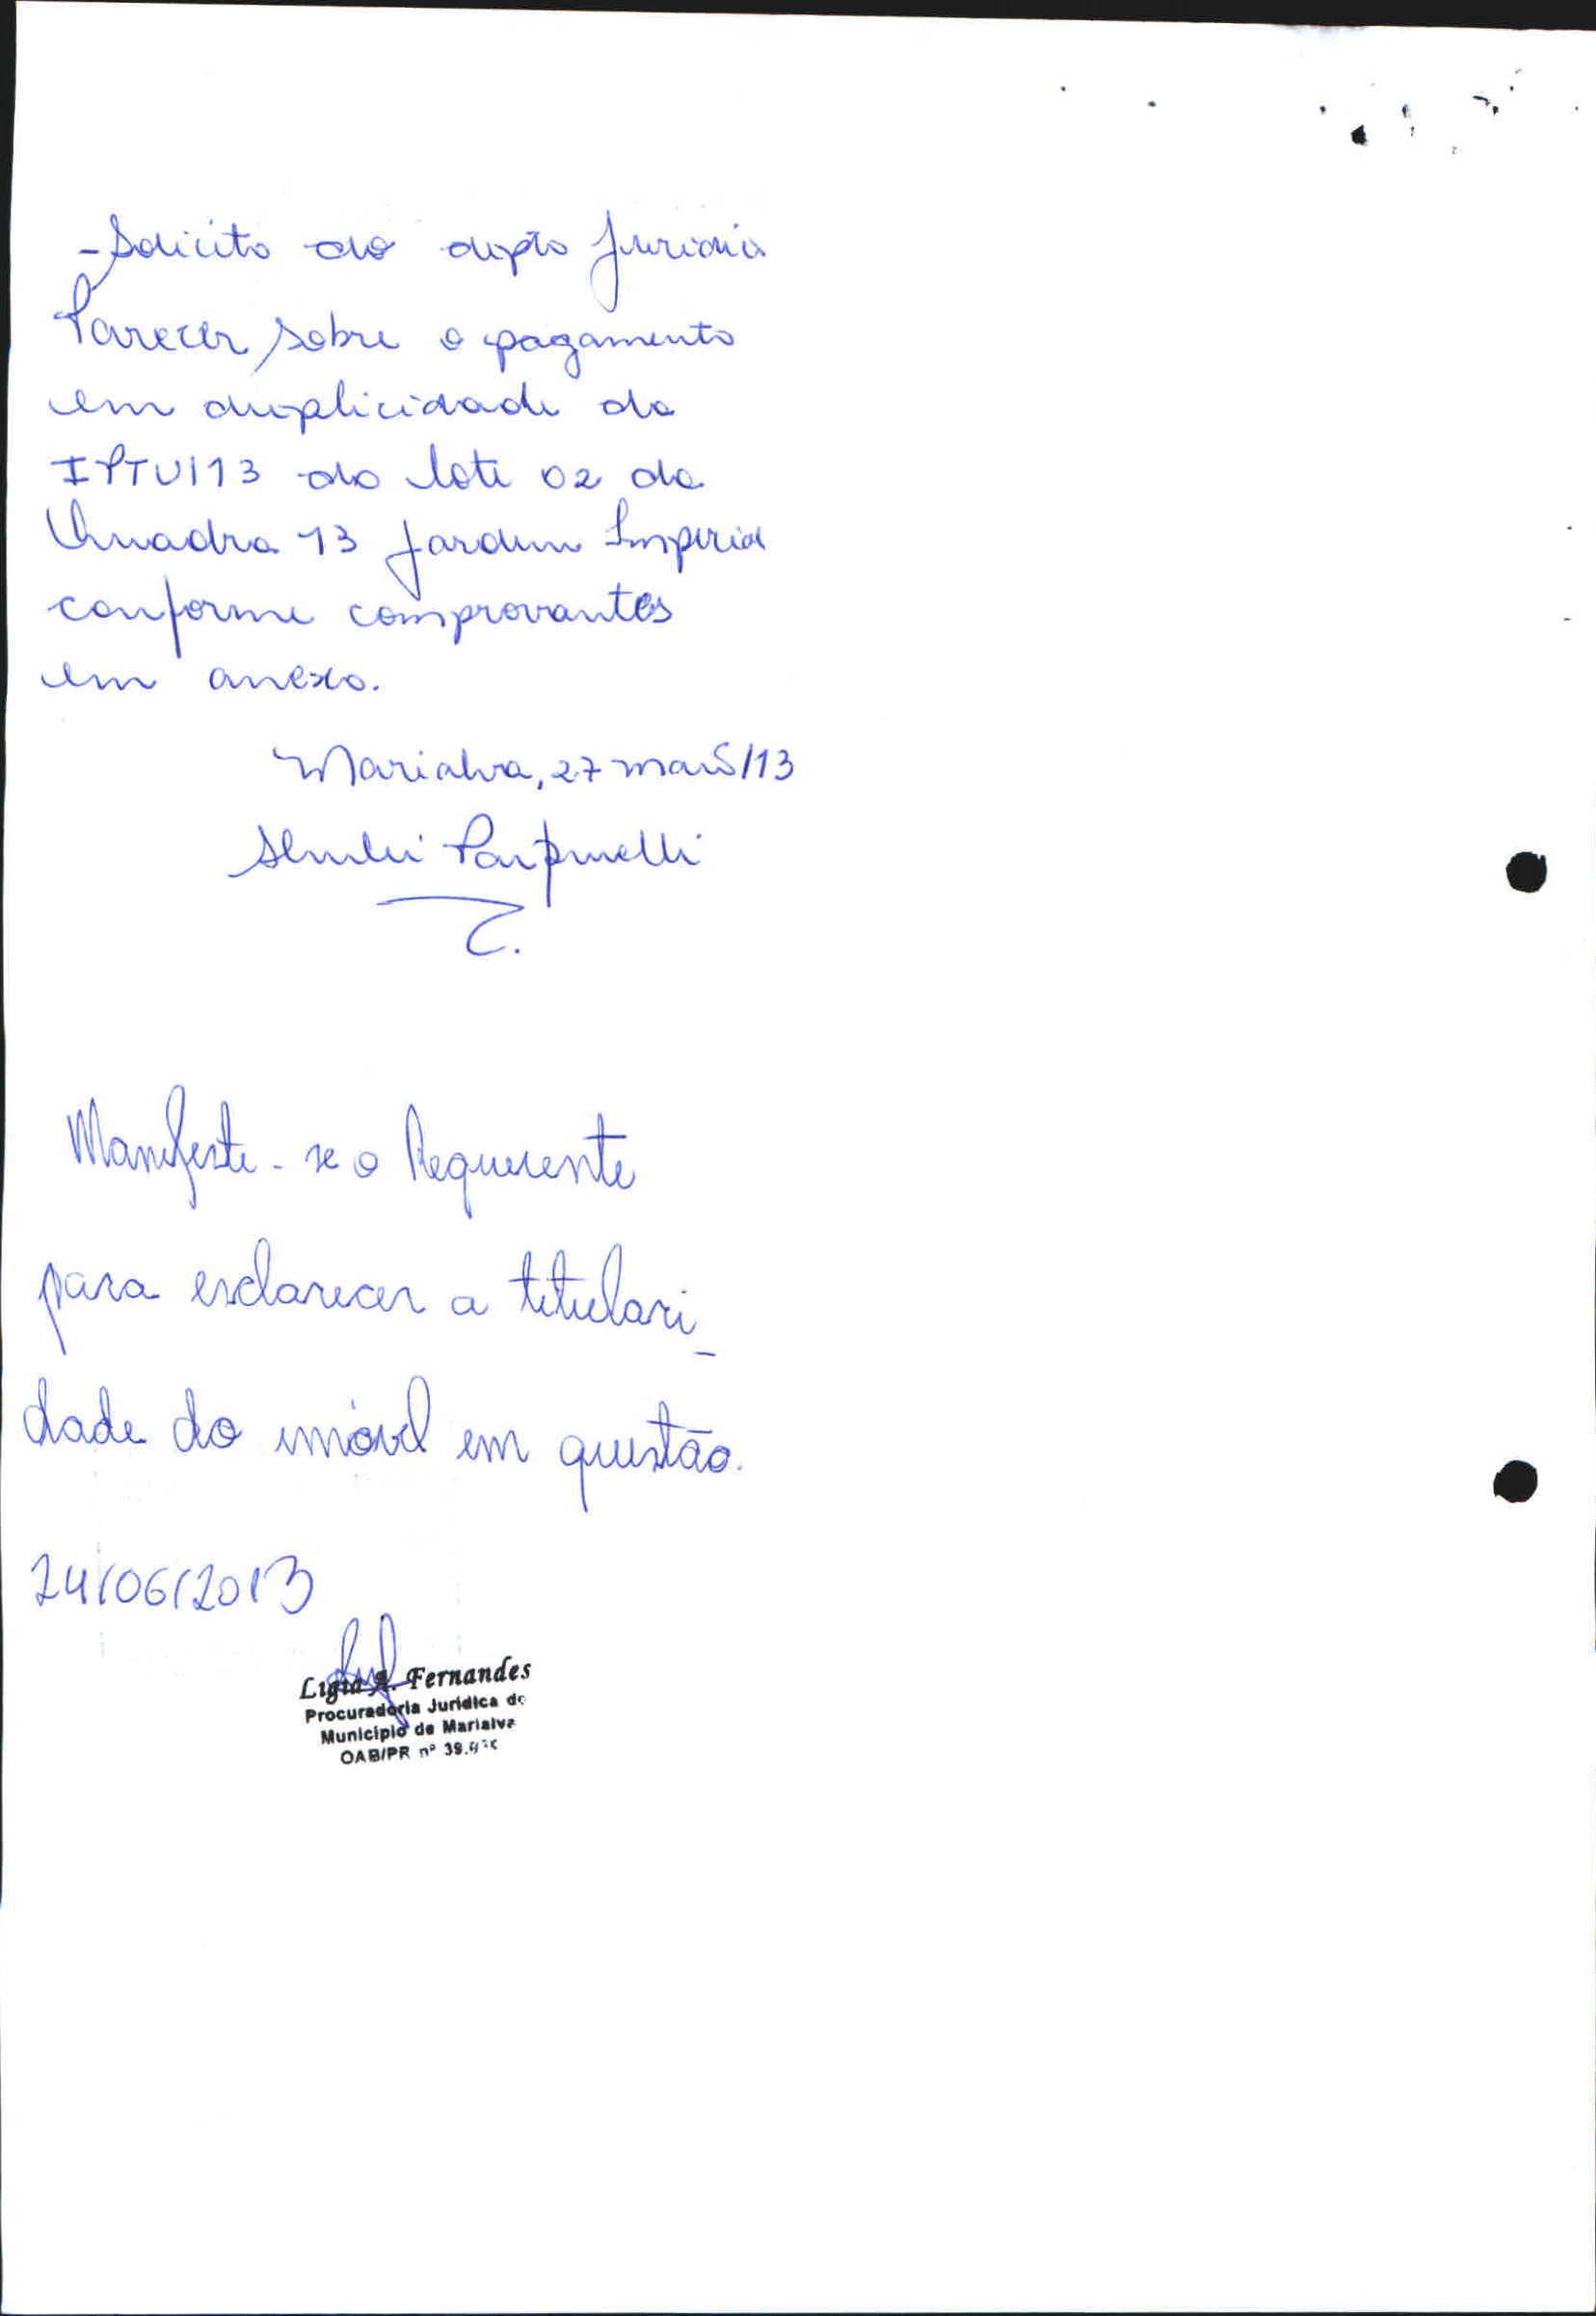 - Solicito do depto Jurídico
Parecer sobre o pagamento
em duplicidade do
IPTU/13 do lote 02 da
Quadra 13 Jardim Imperial
conforme comprovantes
em anexo.
Marialva, 27 maio/13
Parpinelli
Manifeste-se o Requerente
para esclarecer a titulari-
dade do imóvel em questão.
24/06/2013
Ligia A. Fernandes
Procuradoria Jurídica do
Município de Marialva
OAB/PR nº